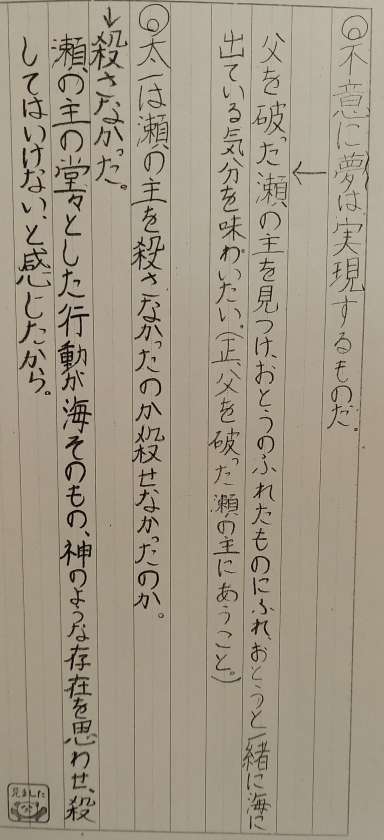 ◎不意に夢は実現するものだ。
↓
父を破った瀬の主を見つけ、おとうのふれたものにふれ、おとうと一緒に海に
出ている気分を味わいたい。(正、父を破った瀬の主にあうこと。)
◎太一は瀬の主を殺さなかったのか殺せなかったのか。
↓殺さなかった。
瀬の主の堂々とした行動が海そのもの、神のような存在を思わせ、殺
してはいけない、と感じたから。
見ました